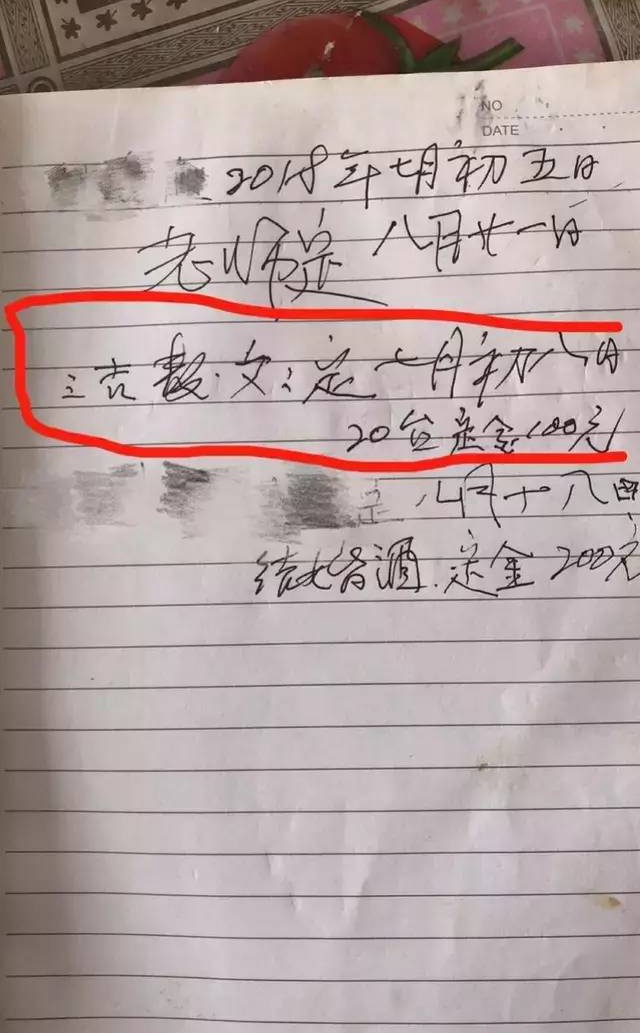 NO
DATE
2018年七月初五日
老师定 八月廿一日
文定 七月初八日
20台定金100元
八月十八日
结婚酒.定金200元